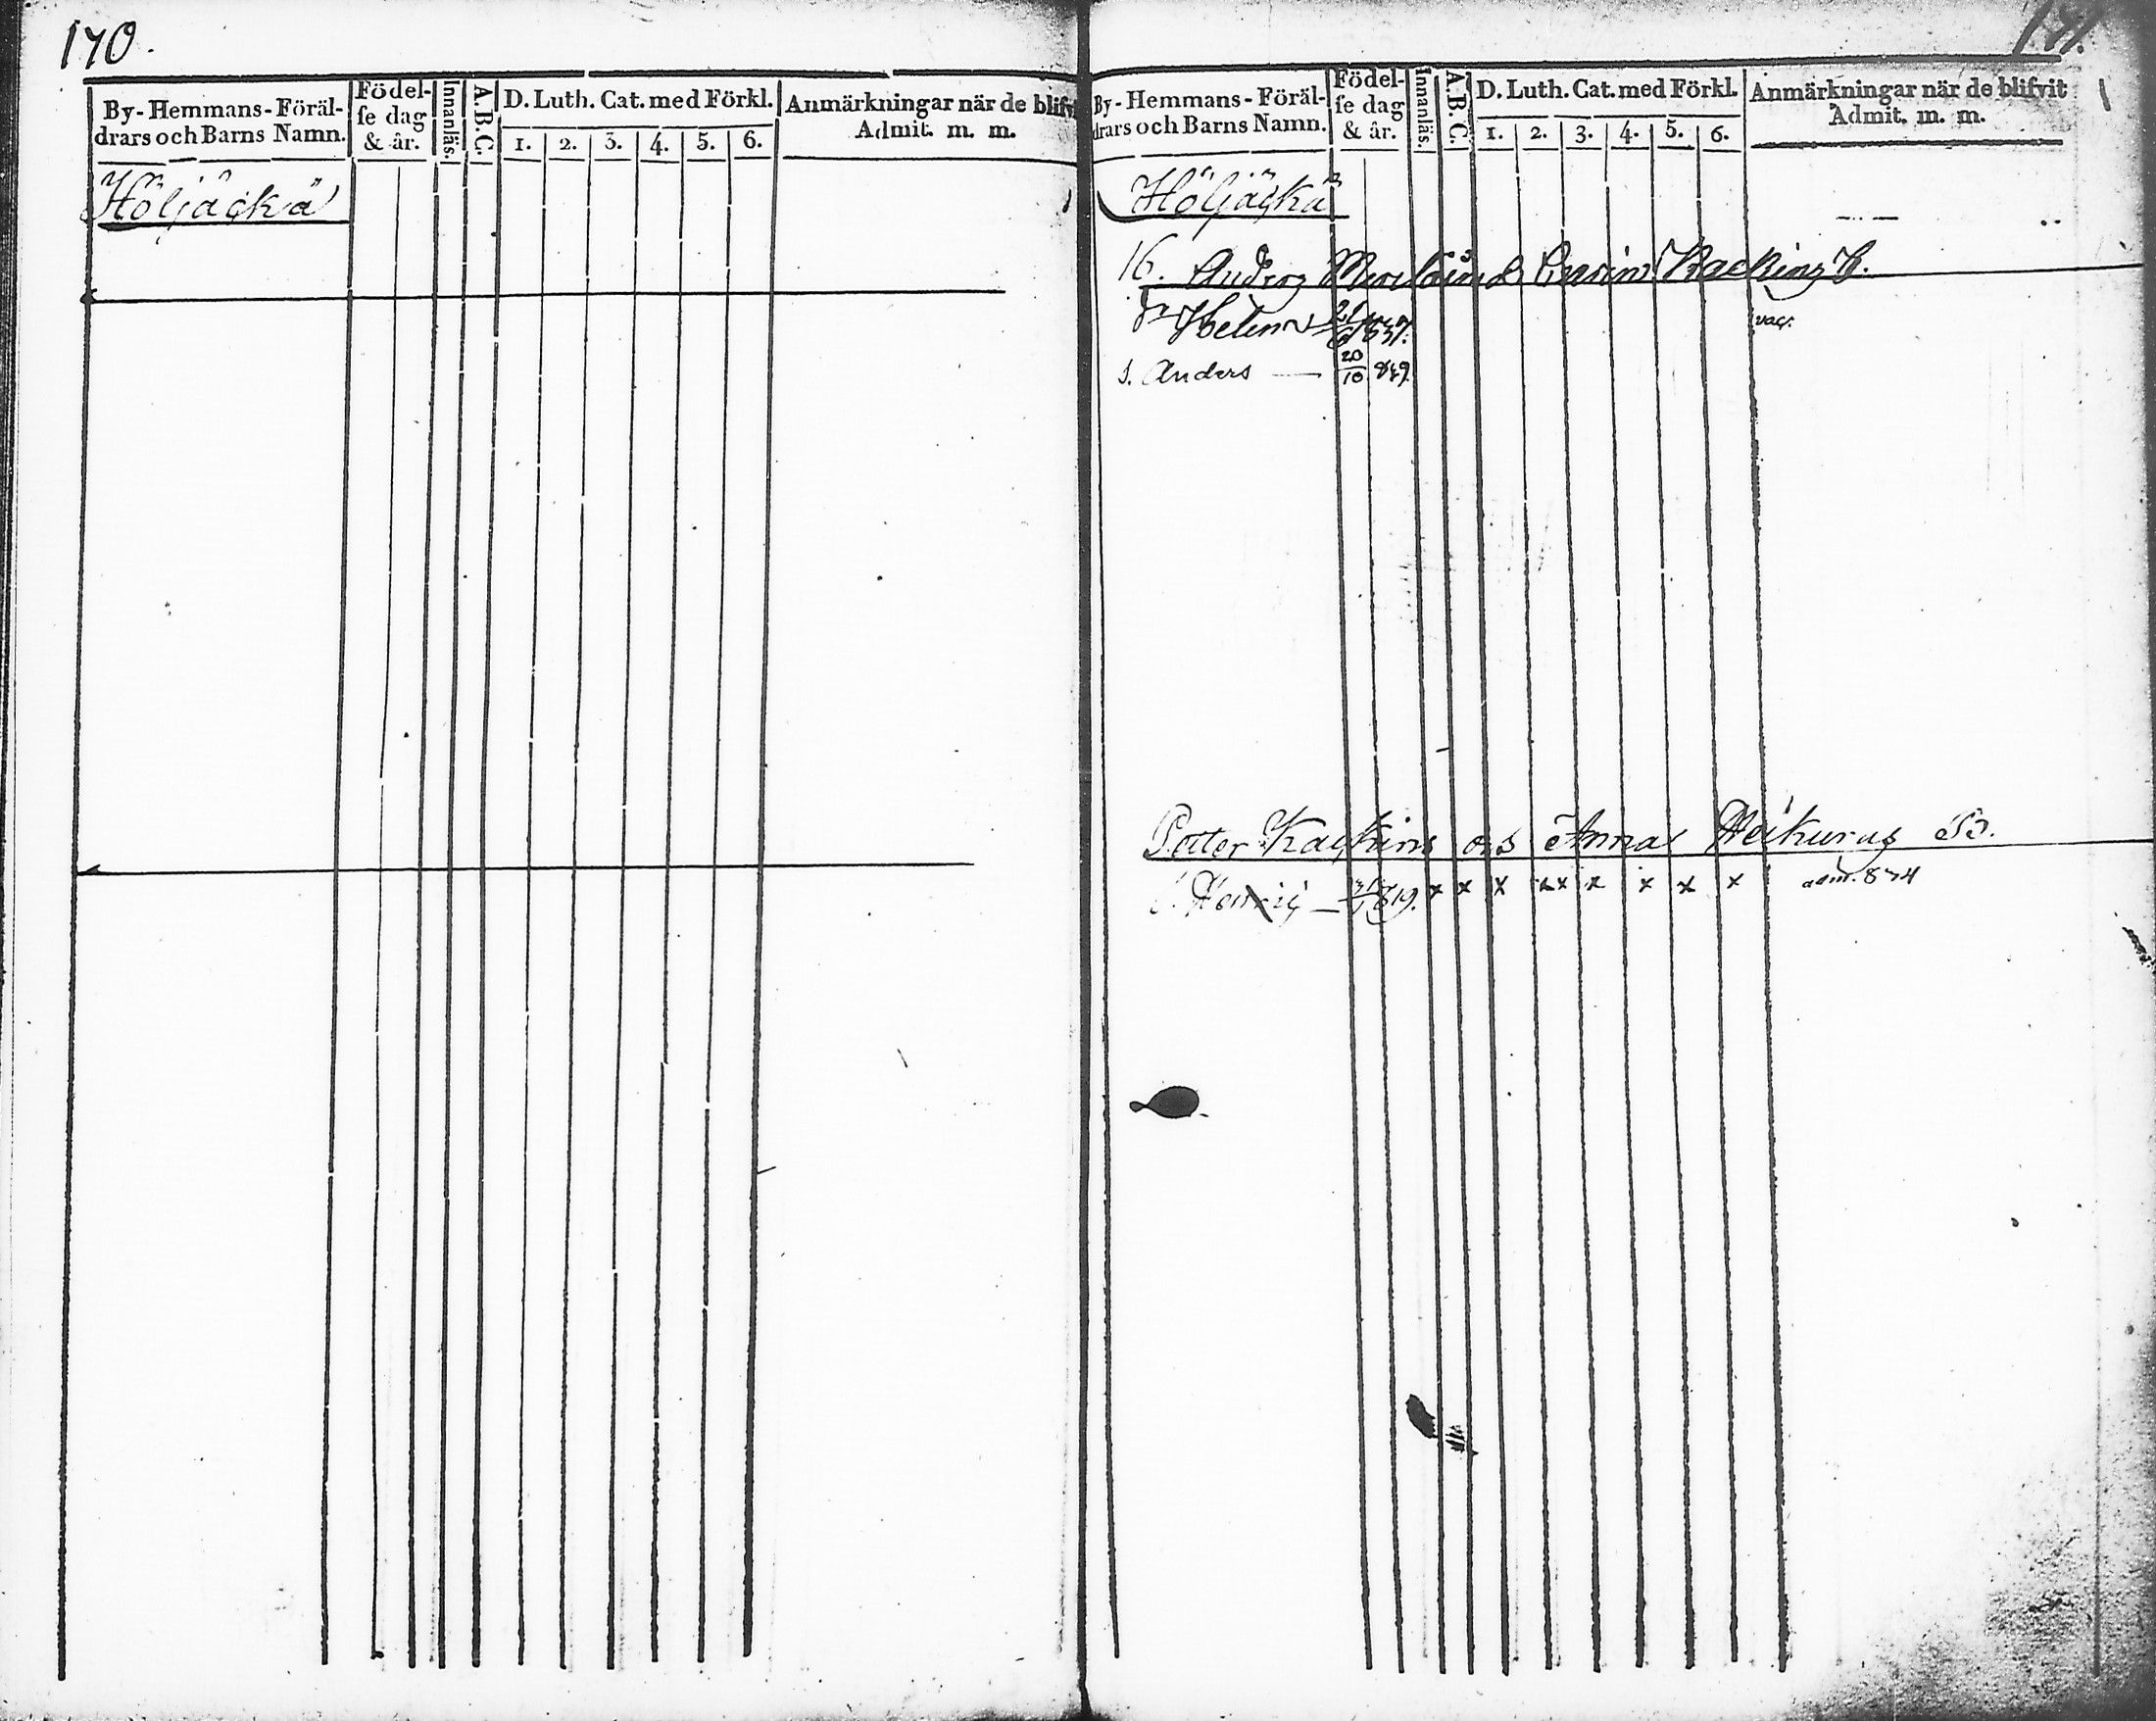 170.
By-Hemmans-Föräl-
drars och Barns Namn.
Födel-
se dag
& år.
Innanläs.
A.B.C.
D. Luth. Cat. med Förkl.
1. 2. 3. 4. 5. 6.
Anmärkningar när de blifvi
Admit. m. m.
Höljäckä
171.
By-Hemmans-Föräl-
drars och Barns Namn.
Födel-
se dag
& år.
Innanläs.
A.B.C.
D. Luth. Cat. med Förkl.
1. 2. 3. 4. 5. 6.
Anmärkningar när de blifvit
Admit. m. m.
Höljäckä
16. Anders
Helena 837. vac.
s. Anders — 20/10 849.
Petter Kackins och Anna Heikuras
s. Henric — 819. x x x x x x x x x adm. 874